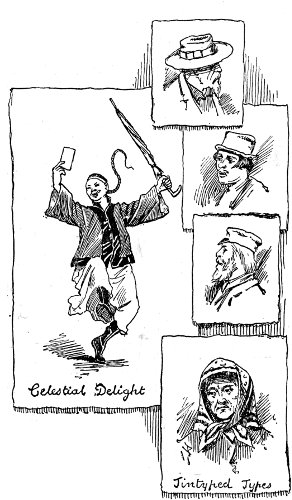 Celestial Delight
Tintyped Types